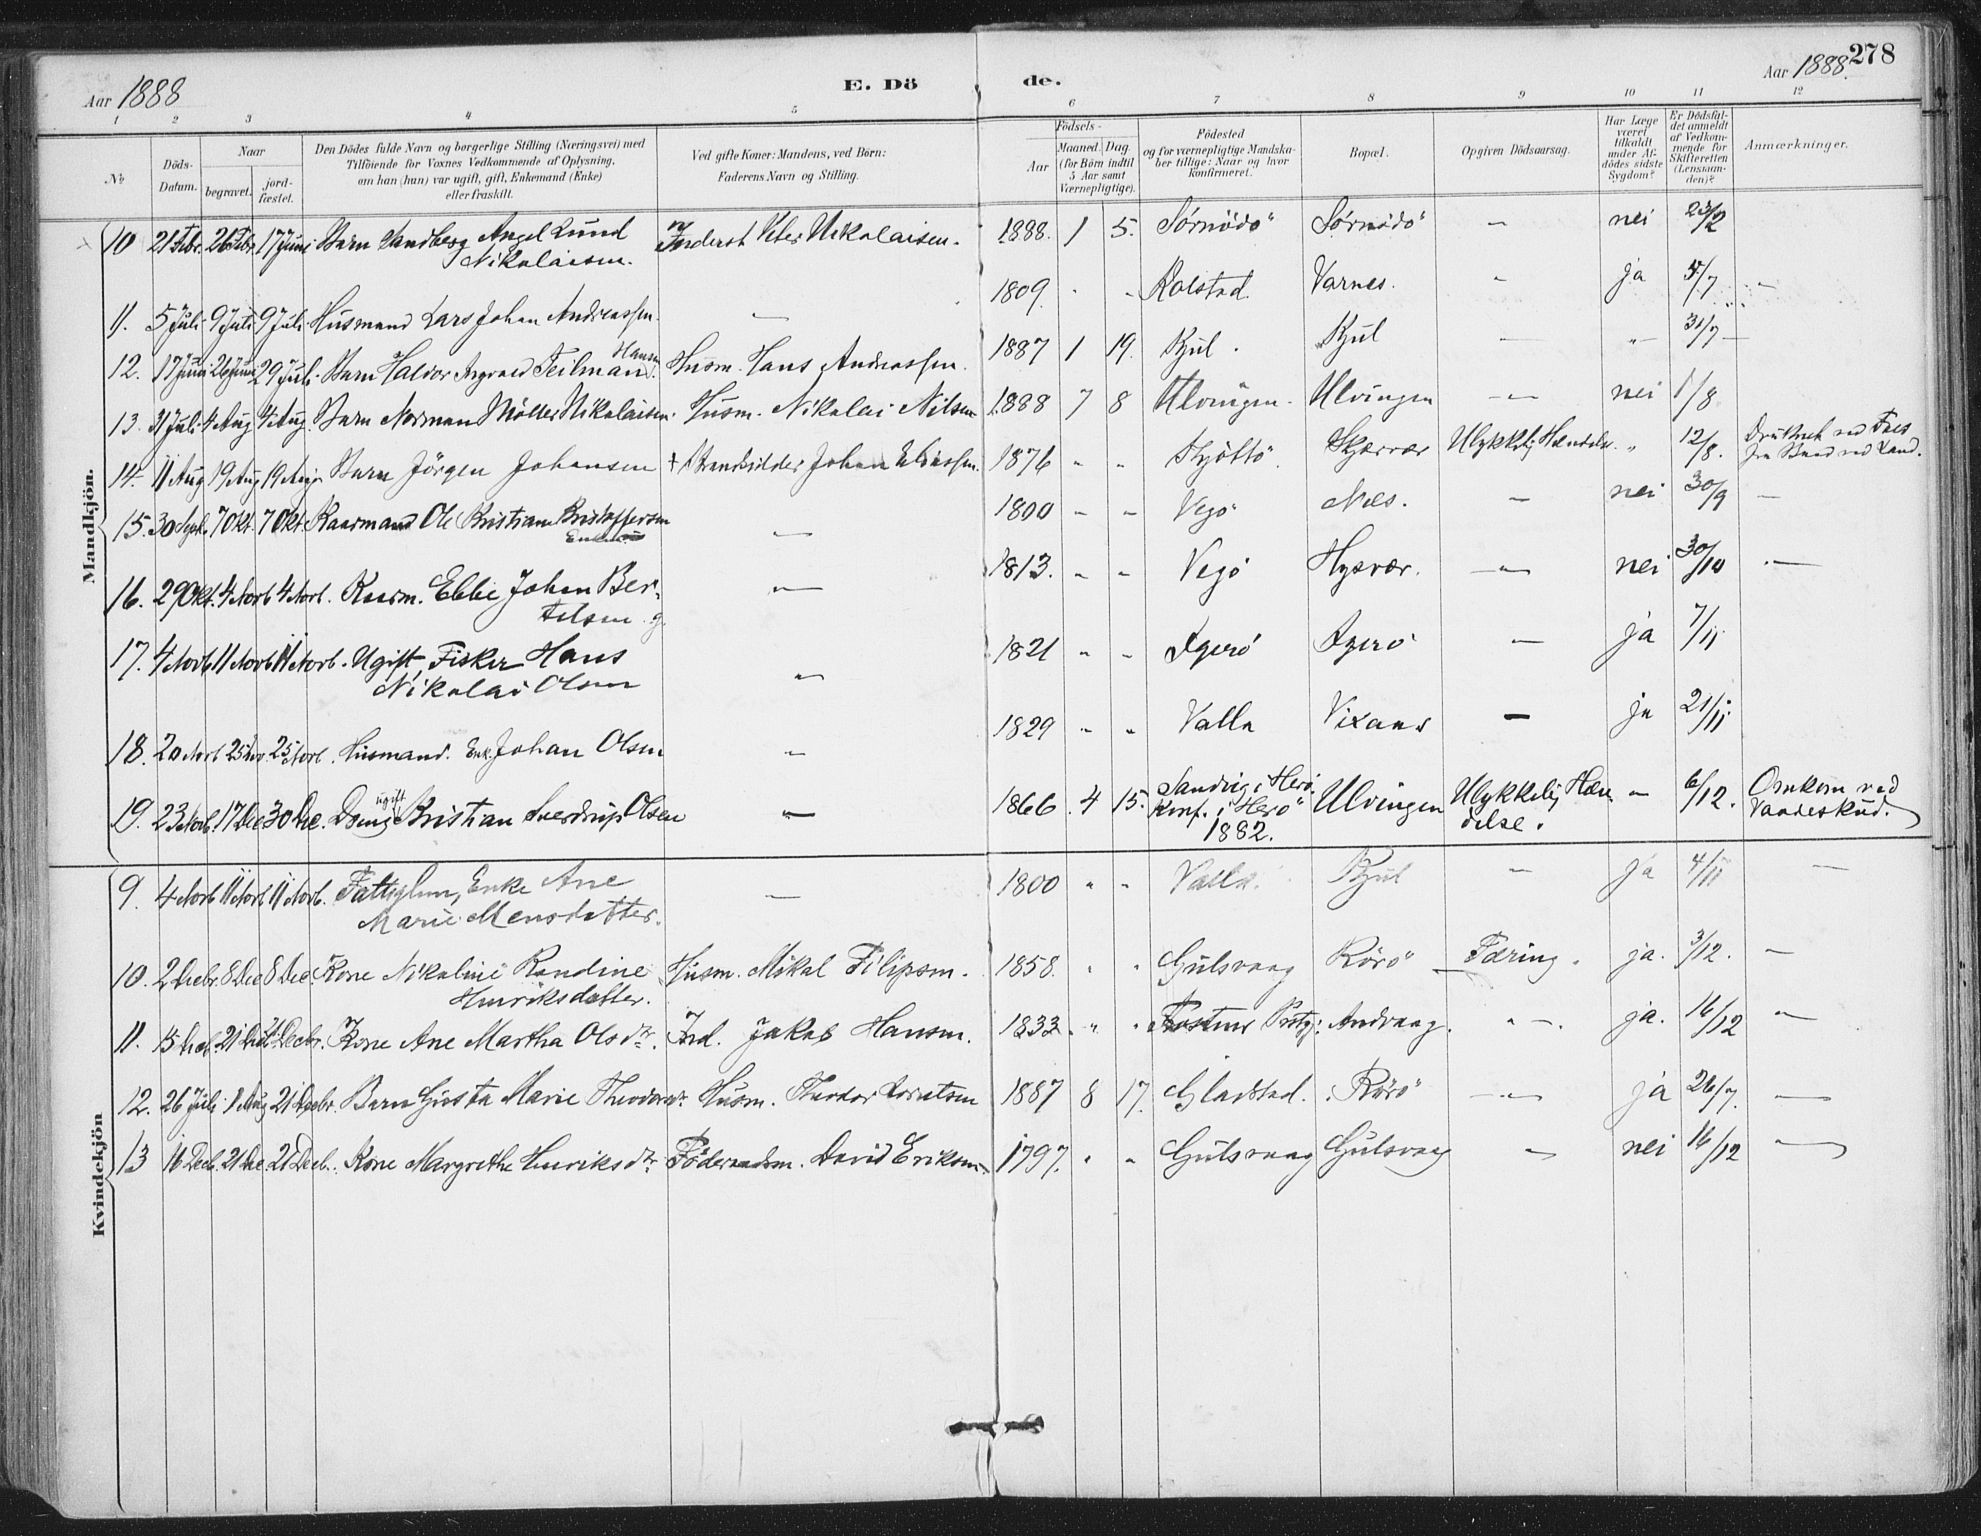 278
Aar 1888
E. Dö de.
Aar 1888.
1 2 3 4 5 6 7 8 9 10 11 12
No
Döds-Datum.
Naar
begravet. jord-fæstet.
Den Dödes fulde Navn og borgerlige Stilling (Næringsvei) med
Tilföiende for Voxnes Vedkommende af Oplysning,
om han (hun) var ugift, gift, Enkemand (Enke)
eller fraskilt.
Ved gifte Koner: Mandens, ved Börn:
Faderens Navn og Stilling.
Födsels-
Aar Maaned. Dag.
(for Börn indtil
5 Aar samt
Værnepligtige).
Födested
og for værnepligtige Mandska-
ber tillige: Naar og hvor
konfirmeret.
Bopæl.
Opgiven Dödsaarsag.
Har Læge
været
tilkaldt
under Af-
dödes sidste
Sygdom?
Er Dödsfal-
det anmeldt
af Vedkom-
mende for
Skifteretten
(Lensman-
den)?
Anmærkninger.
Mandkjön.
10 21 Febr. 26 Febr. 17 Juni Barn Sandberg Angel Lund Inderst Peter Nikolaisen. 1888. 1 5. Sörnödö Sörnödö — nei 23/2
Nikolaisen.
11. 5 Juli 9 Juli 9 Juli Husmand Lars Johan Andreassen. — 1809 " " Rolstad. Varnes. " ja 5/7 —
12. 17 Juni 26 Juni 29 Juli Barn Halvor Ingvald Teilman Hansen. Husm. Hans Andreassen. 1887 1 19. Kjul. Kjul — " 31/7 —
13. 31 Juli 4 Aug 4 Aug. Barn Norman Möller Nikolaisen. Husm. Nikolai Nilsen 1888 7 8 Ulvingen. Ulvingen — nei 1/8
14. 11 Aug 19 Aug 19 Aug. Barn Jörgen Johansen + Strandsidder Johan Eliassen. 1876 " " Tjöttö Skjærvær Ulykkelig Hændelse. " 12/8. Druknet ved Fals
fra Baad ved Land.
15. 30 Sept. 7 Okt. 7 Okt. Kaarmand Ole Kristian Kristoffersen — 1800 " " Vegö Næs. — nei 30/9 —
Enkem.
16. 29 Okt. 4 Novb 4 Novb. Kaarm. Ebbe Johan Ber- — 1813. " " Vegö Hysvær. — nei 30/10 —
telsen g.
17. 4 Novb 11 Novb 11 Novb. Ugift, Fisker Hans 1821 " " Igerö Igerö — ja 7/11
Nikolai Olsen "
18. 20 Novb 25 Nov. 25 Novb. Husmand. Enk. Johan Olsen " 1829 " " Valla Vixaas — ja 21/11
19. 23 Novb. 17 Dec 30 Dec. Dreng ugift Kristian Sverdrup Olsen " 1866. 4 15. Sandvig i Herö. Ulvingen Ulykkelig Hæn- — 6/12. Omkom ved
Konf. i Herö delse. Vaadeskud.
1882.
Kvindekjön
9. 4 Novb 11 Novb 11 Novb. Fattiglem, Enke Ane — 1800 " " Valla. Kjul " ja 4/11 —
Marie Mensdatter.
10. 2 Decbr. 8 Dec 8 Dec. Kone Nikoline Randine Husm. Mikal Filipsen. 1858. " " Gulsvaag Rörö Tæring. ja. 3/12. —
Henriksdatter.
11. 15 Decb. 21 Decb. 21 Decbr. Kone Ane Martha Olsdr. Ind. Jakob Hansen. 1833. " " Fosnes Prstg: Andvaag. " ja. 16/12 "
12. 26 Juli 1 Aug 21 Decbr. Barn Gusta Marie Theodordr. Husm. Theodor Lorntsen 1887 8 17. Gladstad. Rörö — ja 26/7. —
13 16 Decb. 21 Dec 21 Decb. Kone Margrethe Henriksdr. Föderaadsm. David Eriksen. 1797. " " Gulsvaag Gulsvaag " nei 16/12 —